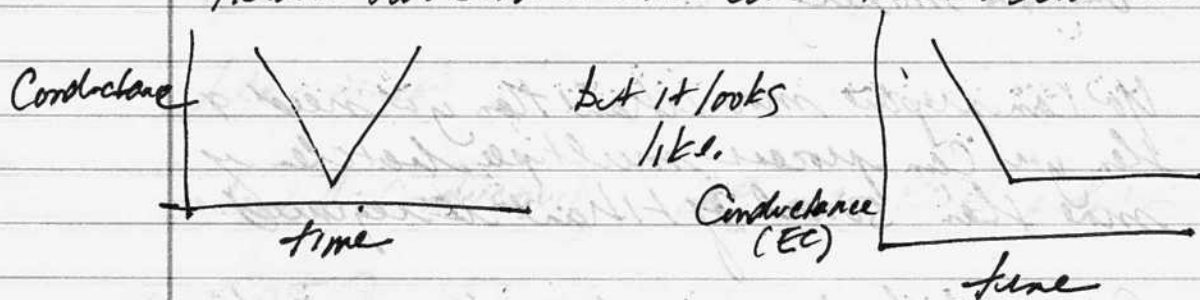 Conductance
time
but it looks
like.
Conductance
(EC)
time